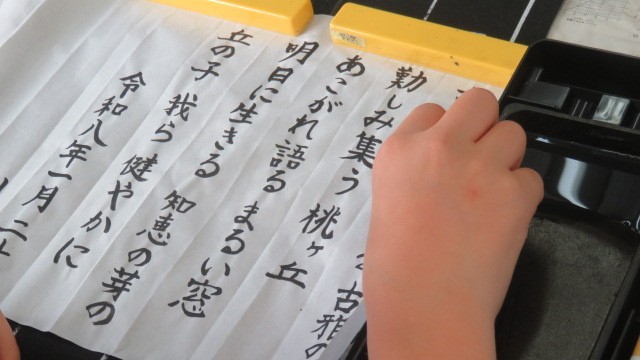 古雅の
勤しみ集う 桃ヶ丘
あこがれ語る まるい窓
明日に生きる 知恵の芽の
丘の子 我ら 健やかに
令和八年一月二十